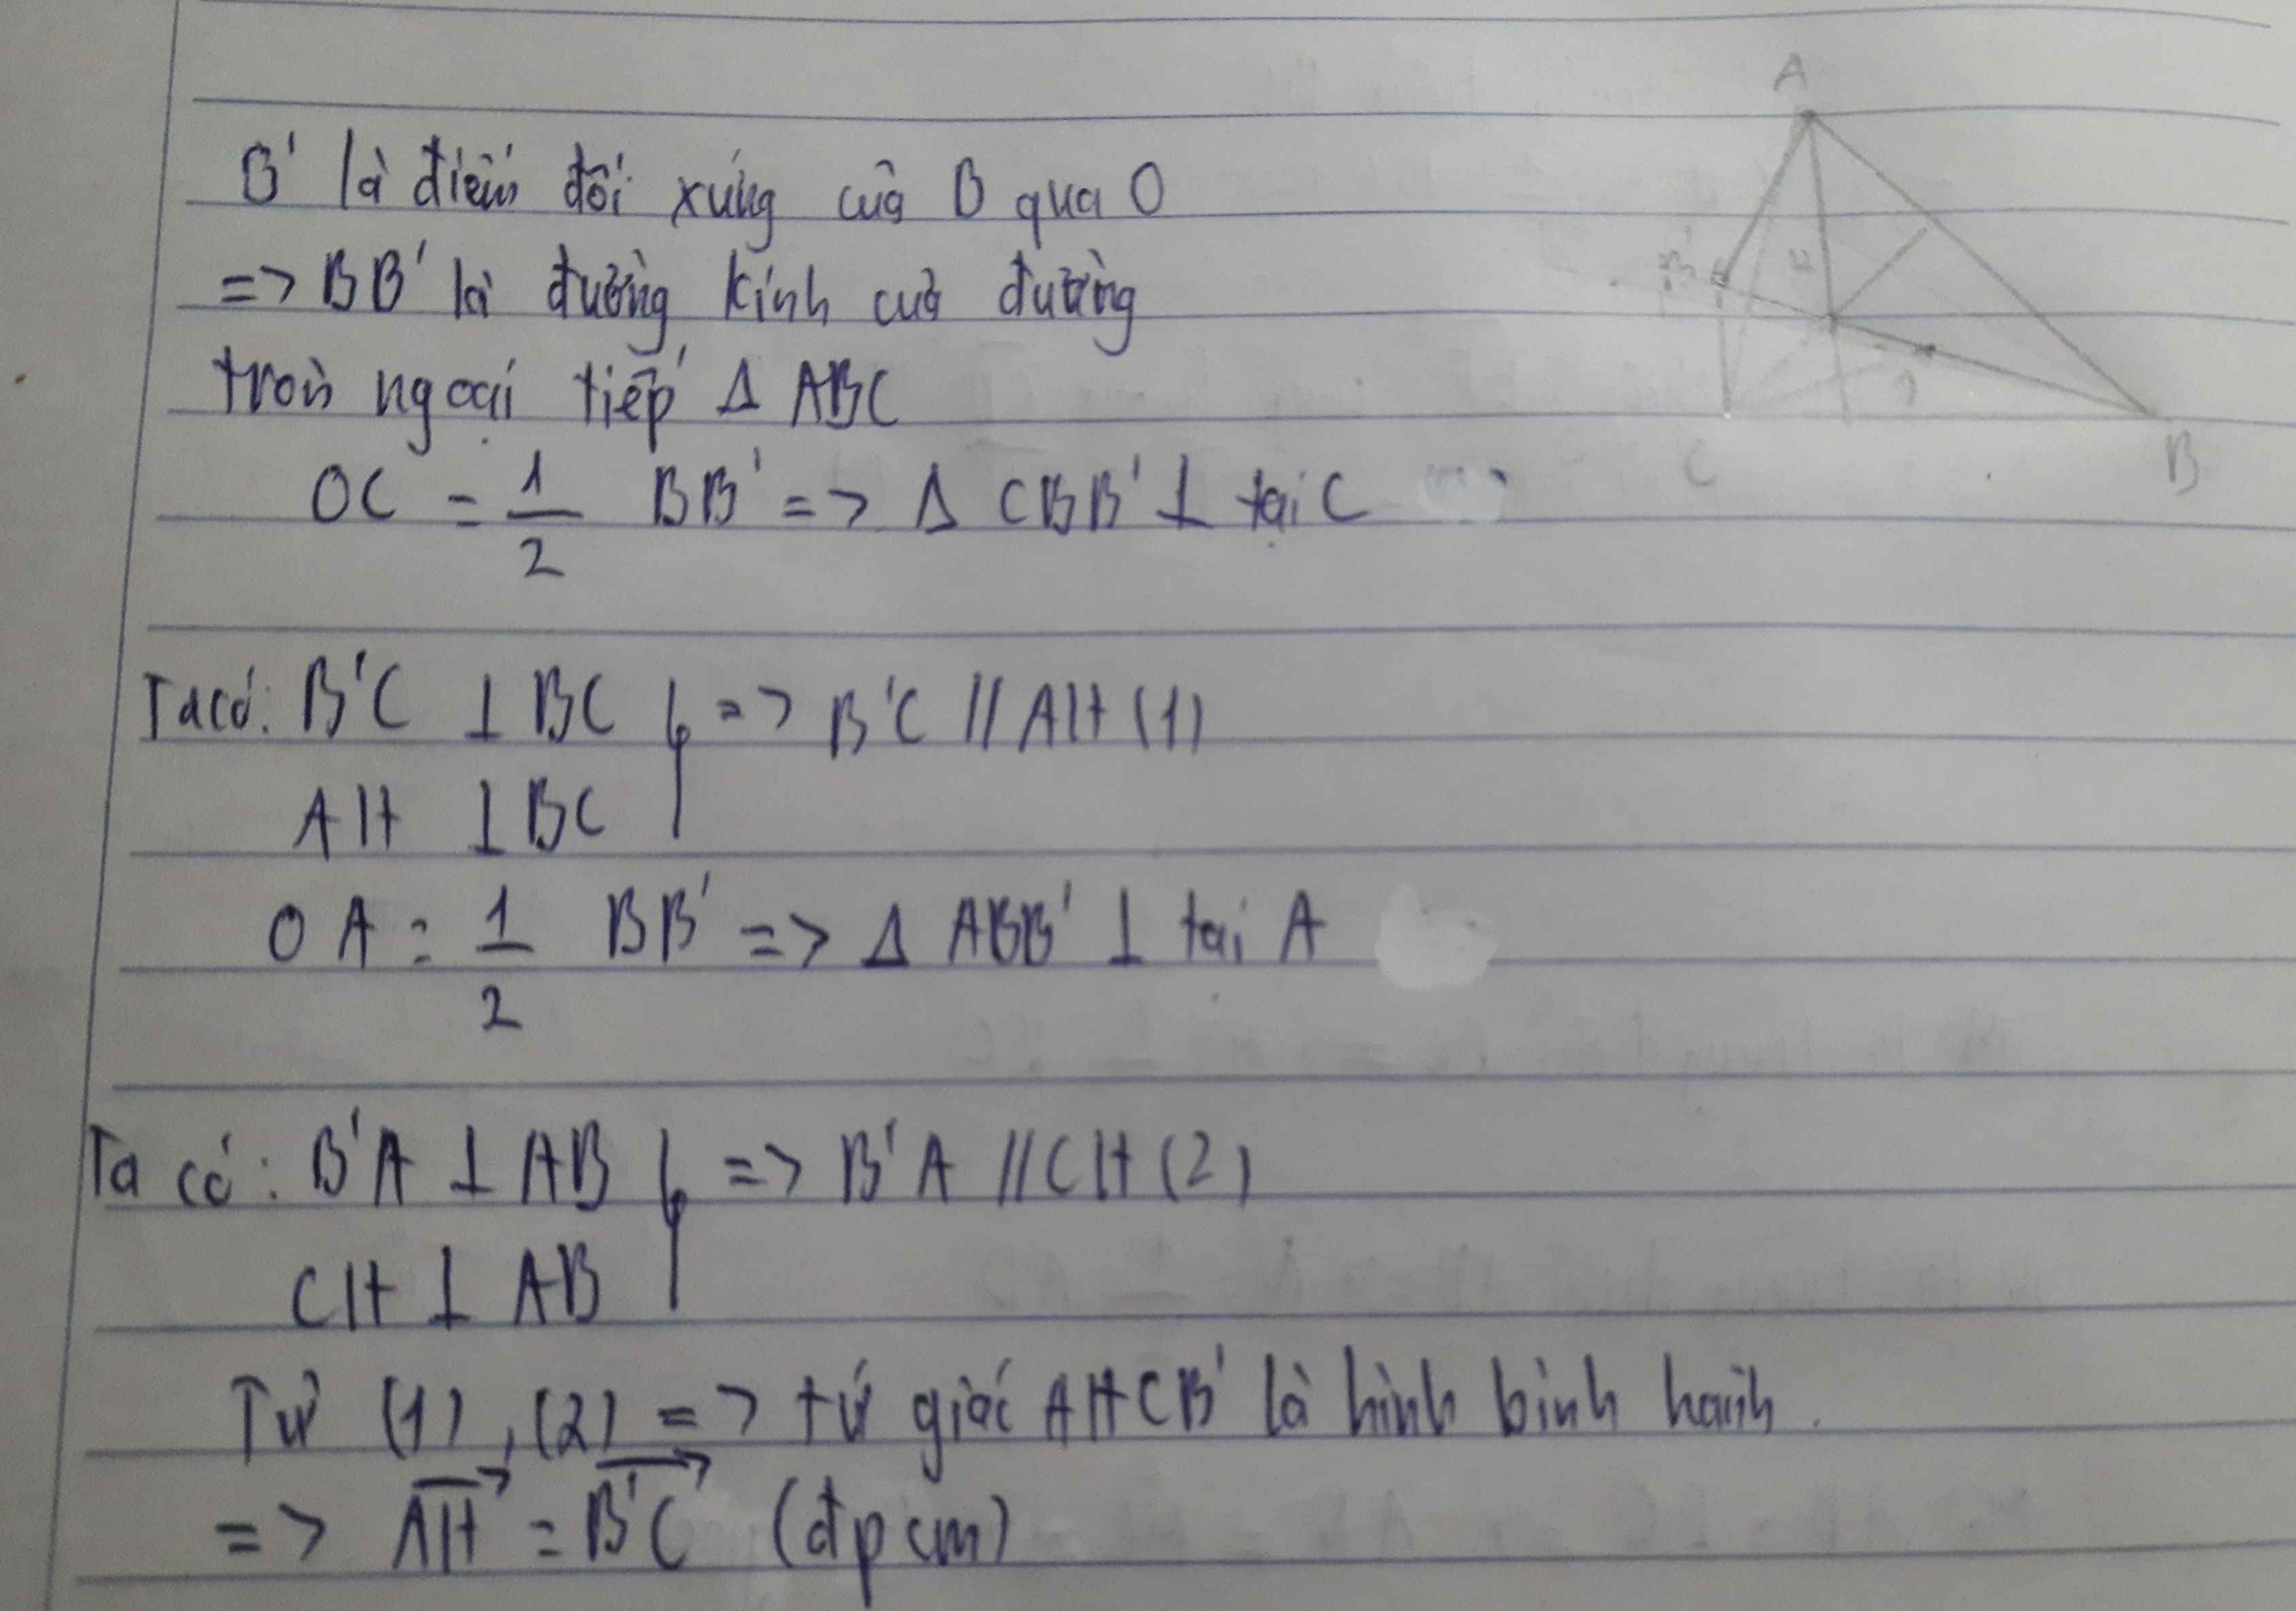 A
B' là điểm đối xứng của B qua O
=> BB' là đường kính của đường
tròn ngoại tiếp Δ ABC
OC = 1/2 BB' => Δ CBB' ⊥ tại C
B'
H
O
C
B
Ta có: B'C ⊥ BC } => B'C // AH (1)
AH ⊥ BC
OA = 1/2 BB' => Δ ABB' ⊥ tại A
Ta có: B'A ⊥ AB } => B'A // CH (2)
CH ⊥ AB
Từ (1), (2) => tứ giác AHCB' là hình bình hành.
=> \overrightarrow{AH} = \overrightarrow{B'C} (đpcm)